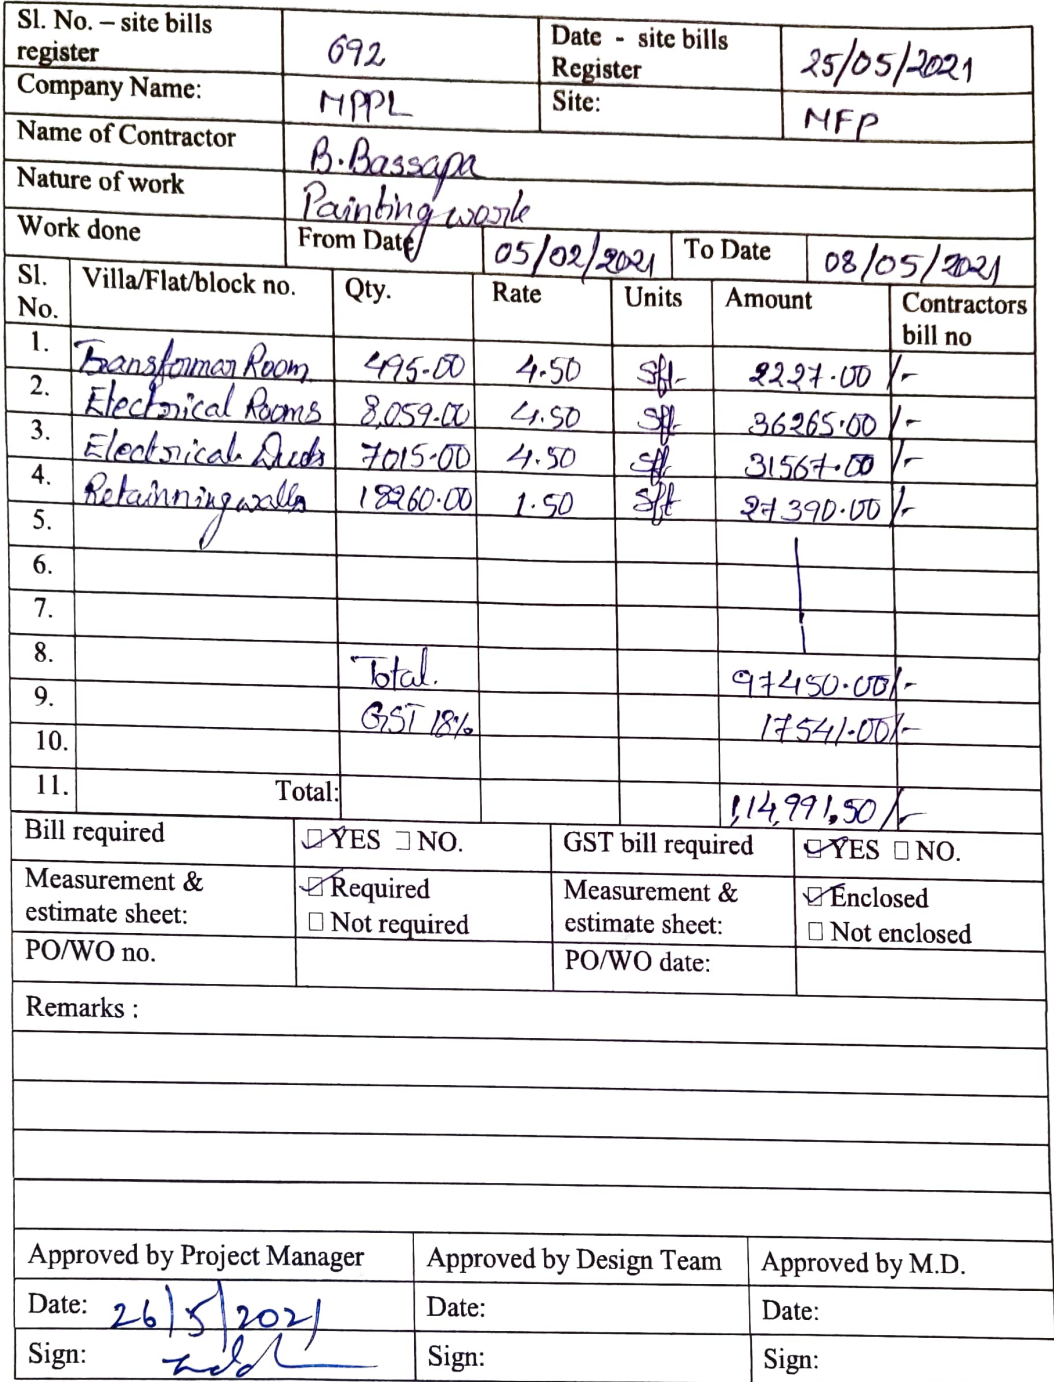 Sl. No. – site bills register 692 Date - site bills Register 25/05/2021
Company Name: MPPL Site: MFP
Name of Contractor B.Bassapa
Nature of work Painting work
Work done From Date 05/02/2021 To Date 08/05/2021
Sl. No. Villa/Flat/block no. Qty. Rate Units Amount Contractors bill no
1. Transformar Room 495.00 4.50 Sft. 2227.00 /-
2. Electrical Rooms 8,059.00 4.50 Sft. 36265.00 /-
3. Electrical Ducts 7015.00 4.50 Sft. 31567.00 /-
4. Retainning walls 18260.00 1.50 Sft 27390.00 /-
5.
6.
7.
8. Total. 97450.00/-
9. GST 18% 17541.00/-
10.
11. Total: 1,14,991.50/-
Bill required ☑ YES ☐ NO. GST bill required ☑ YES ☐ NO.
Measurement & estimate sheet: ☑ Required ☐ Not required Measurement & estimate sheet: ☑ Enclosed ☐ Not enclosed
PO/WO no. PO/WO date:
Remarks :
Approved by Project Manager Approved by Design Team Approved by M.D.
Date: 26/5/2021 Date: Date:
Sign: Sign: Sign: